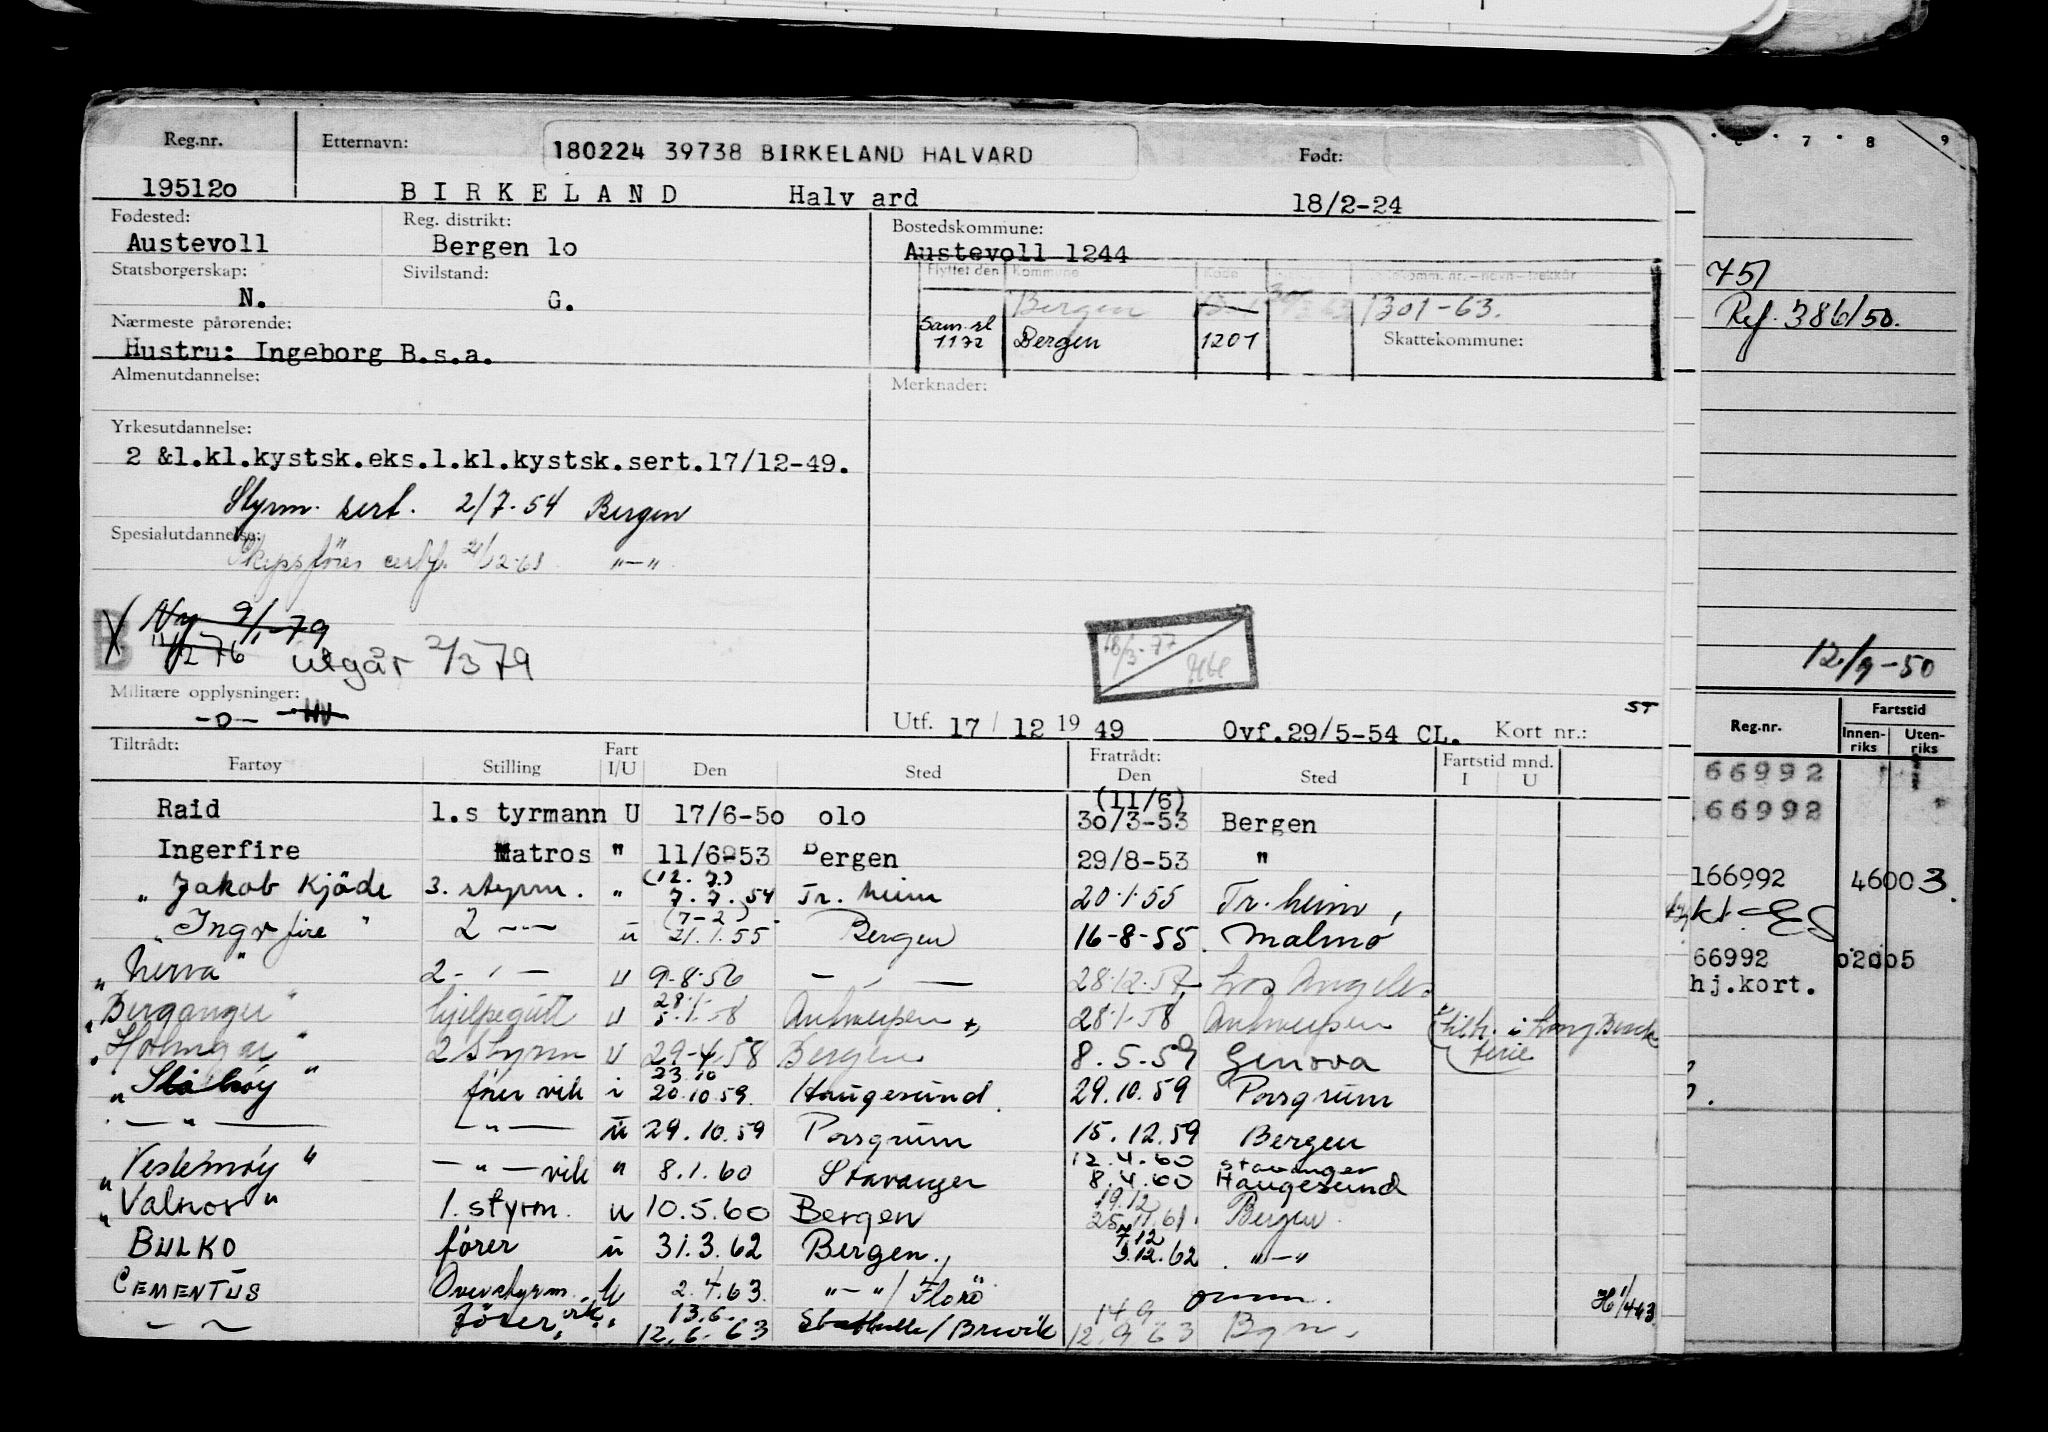 Reg.nr. Etternavn: 180224 39738 BIRKELAND HALVARD Født:
19512o BIRKELAND Halv ard 18/2-24
Fødested: Reg. distrikt: Bostedskommune:
Austevoll Bergen 1o Austevoll 1244
Statsborgerskap: Sivilstand: Flyttet den Kommune
N. G. Bergen 1301-63.
Nærmeste pårørende: Sam.sl 1172 Bergen 1201 Skattekommune:
Hustru: Ingeborg B.s.a.
Almenutdannelse: Merknader:
Yrkesutdannelse:
2 &1.kl.kystsk.eks.1.kl.kystsk.sert.17/12-49.
Styrm. sert. 2/7-54 Bergen
Spesialutdannelse:
Skipsfører "—"
B 9/1-79
utgår 2/3 79
18/3-77
Militære opplysninger:
-o- HV
Utf. 17/12 1949 Ovf.29/5-54 CL. Kort nr.: ST
Tiltrådt: Fratrådt:
Fartøy Stilling Fart I/U Den Sted Den Sted Fartstid mnd. I U
Raid 1.s tyrmann U 17/6-50 olo (11/6) 30/3-53 Bergen
Ingerfire Matros " 11/6-53 Bergen 29/8-53 "
"Jakob Kjöde 3. styrm. " (12.7.) 7.7.54 Tr.heim 20.1.55 Tr.heim,
"Ingerfire" 2 -"- u (7-2) 21.1.55 Bergen 16-8-55 Malmö
"Nerva" 2-"- u 9-8-56 -"- 28.12.57 Los Angeles
"Berganger" hjelpegutt u 28.1. 5.1.58 Antwerpen 28.1.58 Antwerpen
2 styrm u 29-4-58 Bergen 8.5.59 Genova ferie
förer vik i 23.10 20.10.59. Haugesund. 29.10.59 Porsgrunn
-"- -"- u 29.10.59 Porsgrunn 15.12.59 Bergen
"Vestemøy" -"- vik " 8.1.60 Stavanger 12.4.60 Stavanger 8.4.60 Haugesund
"Valnor" 1. styrm. u 10.5.60 Bergen 19.12 25.11.61. Bergen
BULKO fører u 31.3.62 Bergen., 7.12 3.12.62 "-"
CEMENTUS Overstyrm. U 2.4.63. "-"/Florö omm.
-"- Förer vik. " 13.6. 12.6.63 Stathelle/Brevik 14.9 12.9 63 Bgn.
7 8 9
751
Ref. 386/50.
12/9-50
Reg.nr. Fartstid
Innen-riks Uten-riks
66992
66992
166992 46003
kt.
66992 02005
hj.kort.